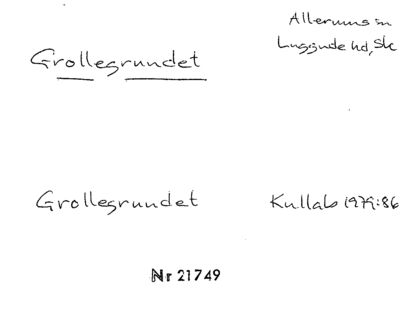 Grollegrundet
Allerums sn
Luggude hd, Sk
Grollegrundet
Kullab 1979:86
Nr 21749